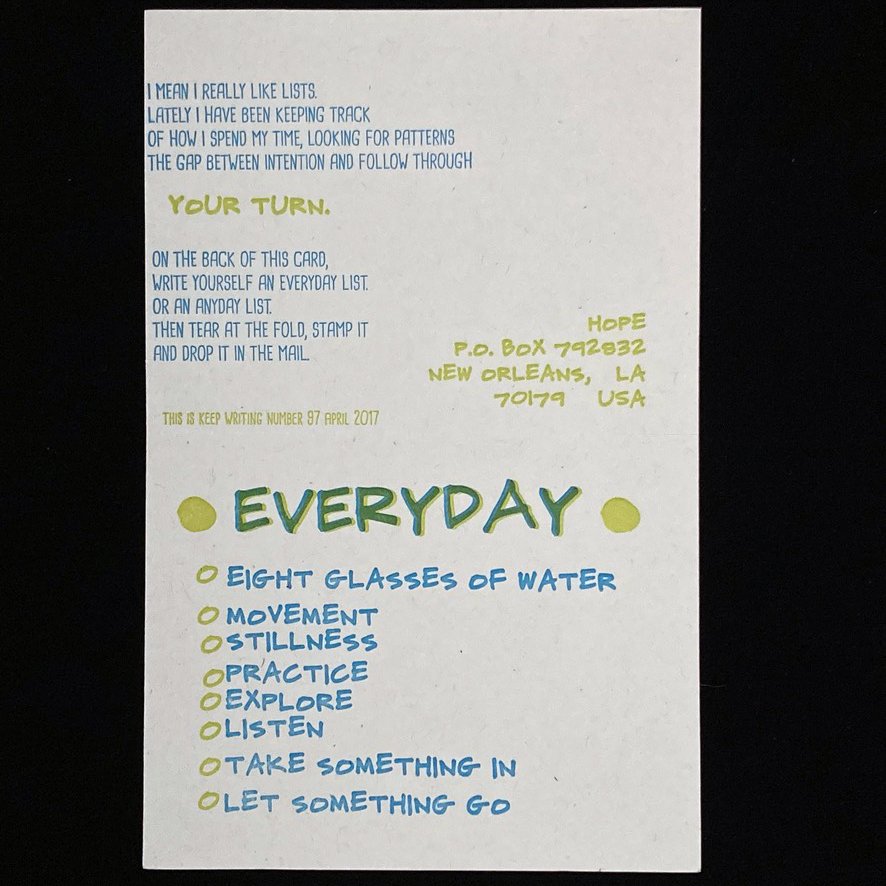 I MEAN I REALLY LIKE LISTS.
LATELY I HAVE BEEN KEEPING TRACK
OF HOW I SPEND MY TIME, LOOKING FOR PATTERNS
THE GAP BETWEEN INTENTION AND FOLLOW THROUGH
YOUR TURN.
ON THE BACK OF THIS CARD,
WRITE YOURSELF AN EVERYDAY LIST.
OR AN ANYDAY LIST.
THEN TEAR AT THE FOLD, STAMP IT
AND DROP IT IN THE MAIL.
HOPE
P.O. BOX 792832
NEW ORLEANS, LA
70179 USA
THIS IS KEEP WRITING NUMBER 97 APRIL 2017
EVERYDAY
EIGHT GLASSES OF WATER
MOVEMENT
STILLNESS
PRACTICE
EXPLORE
LISTEN
TAKE SOMETHING IN
LET SOMETHING GO